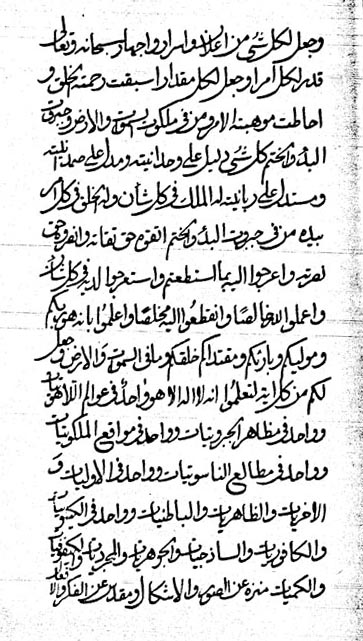 وجعل لكل شئ من اعلان واسرار واجهار سبحانه وتعالى
قدر لكل امرا وجعل لكل مقدارا سبقت رحمته الخلق و
احاطت موهبته الامر ومن فى ملكوت السموات والارض وجبروت
البدء والختم كل شئ دليل على وحدانيته ومدل على صمدانيته
ومستدل على ربانيته له الملك فى كل شأن وله الخلق فى كل امر
بيده من فى جبروت البدء والختم اتقوه حق تقاته وانصروه حق
نصرته واعرجوا اليه ما استطعتم واستعرجوا لديه فى كل شأن
واعملوا لله خالصا وانقطعوا اليه مخلصا واعلموا بانه هو ربكم
ومولیكم وبارئكم ومقتداكم خلقكم وما فى السموات والارض وجعل
لكم من كل اية لتعلموا انه لا اله الا هو واحد فى عوالم اللاهوتيات
وواحد فى مظاهر الجبروتيات وواحد فى مواقع الملكوتيات
وواحد فى مطالع الناسوتيات وواحد فى الاوليات و
الاخريات والظاهريات والباطنيات وواحد فى الكينونيات
والكافوريات والساذجيات والجوهريات والمجرديات والكيفوفيات
والكميات منزه عن الصور والاشكال ومقدس عن الفكر